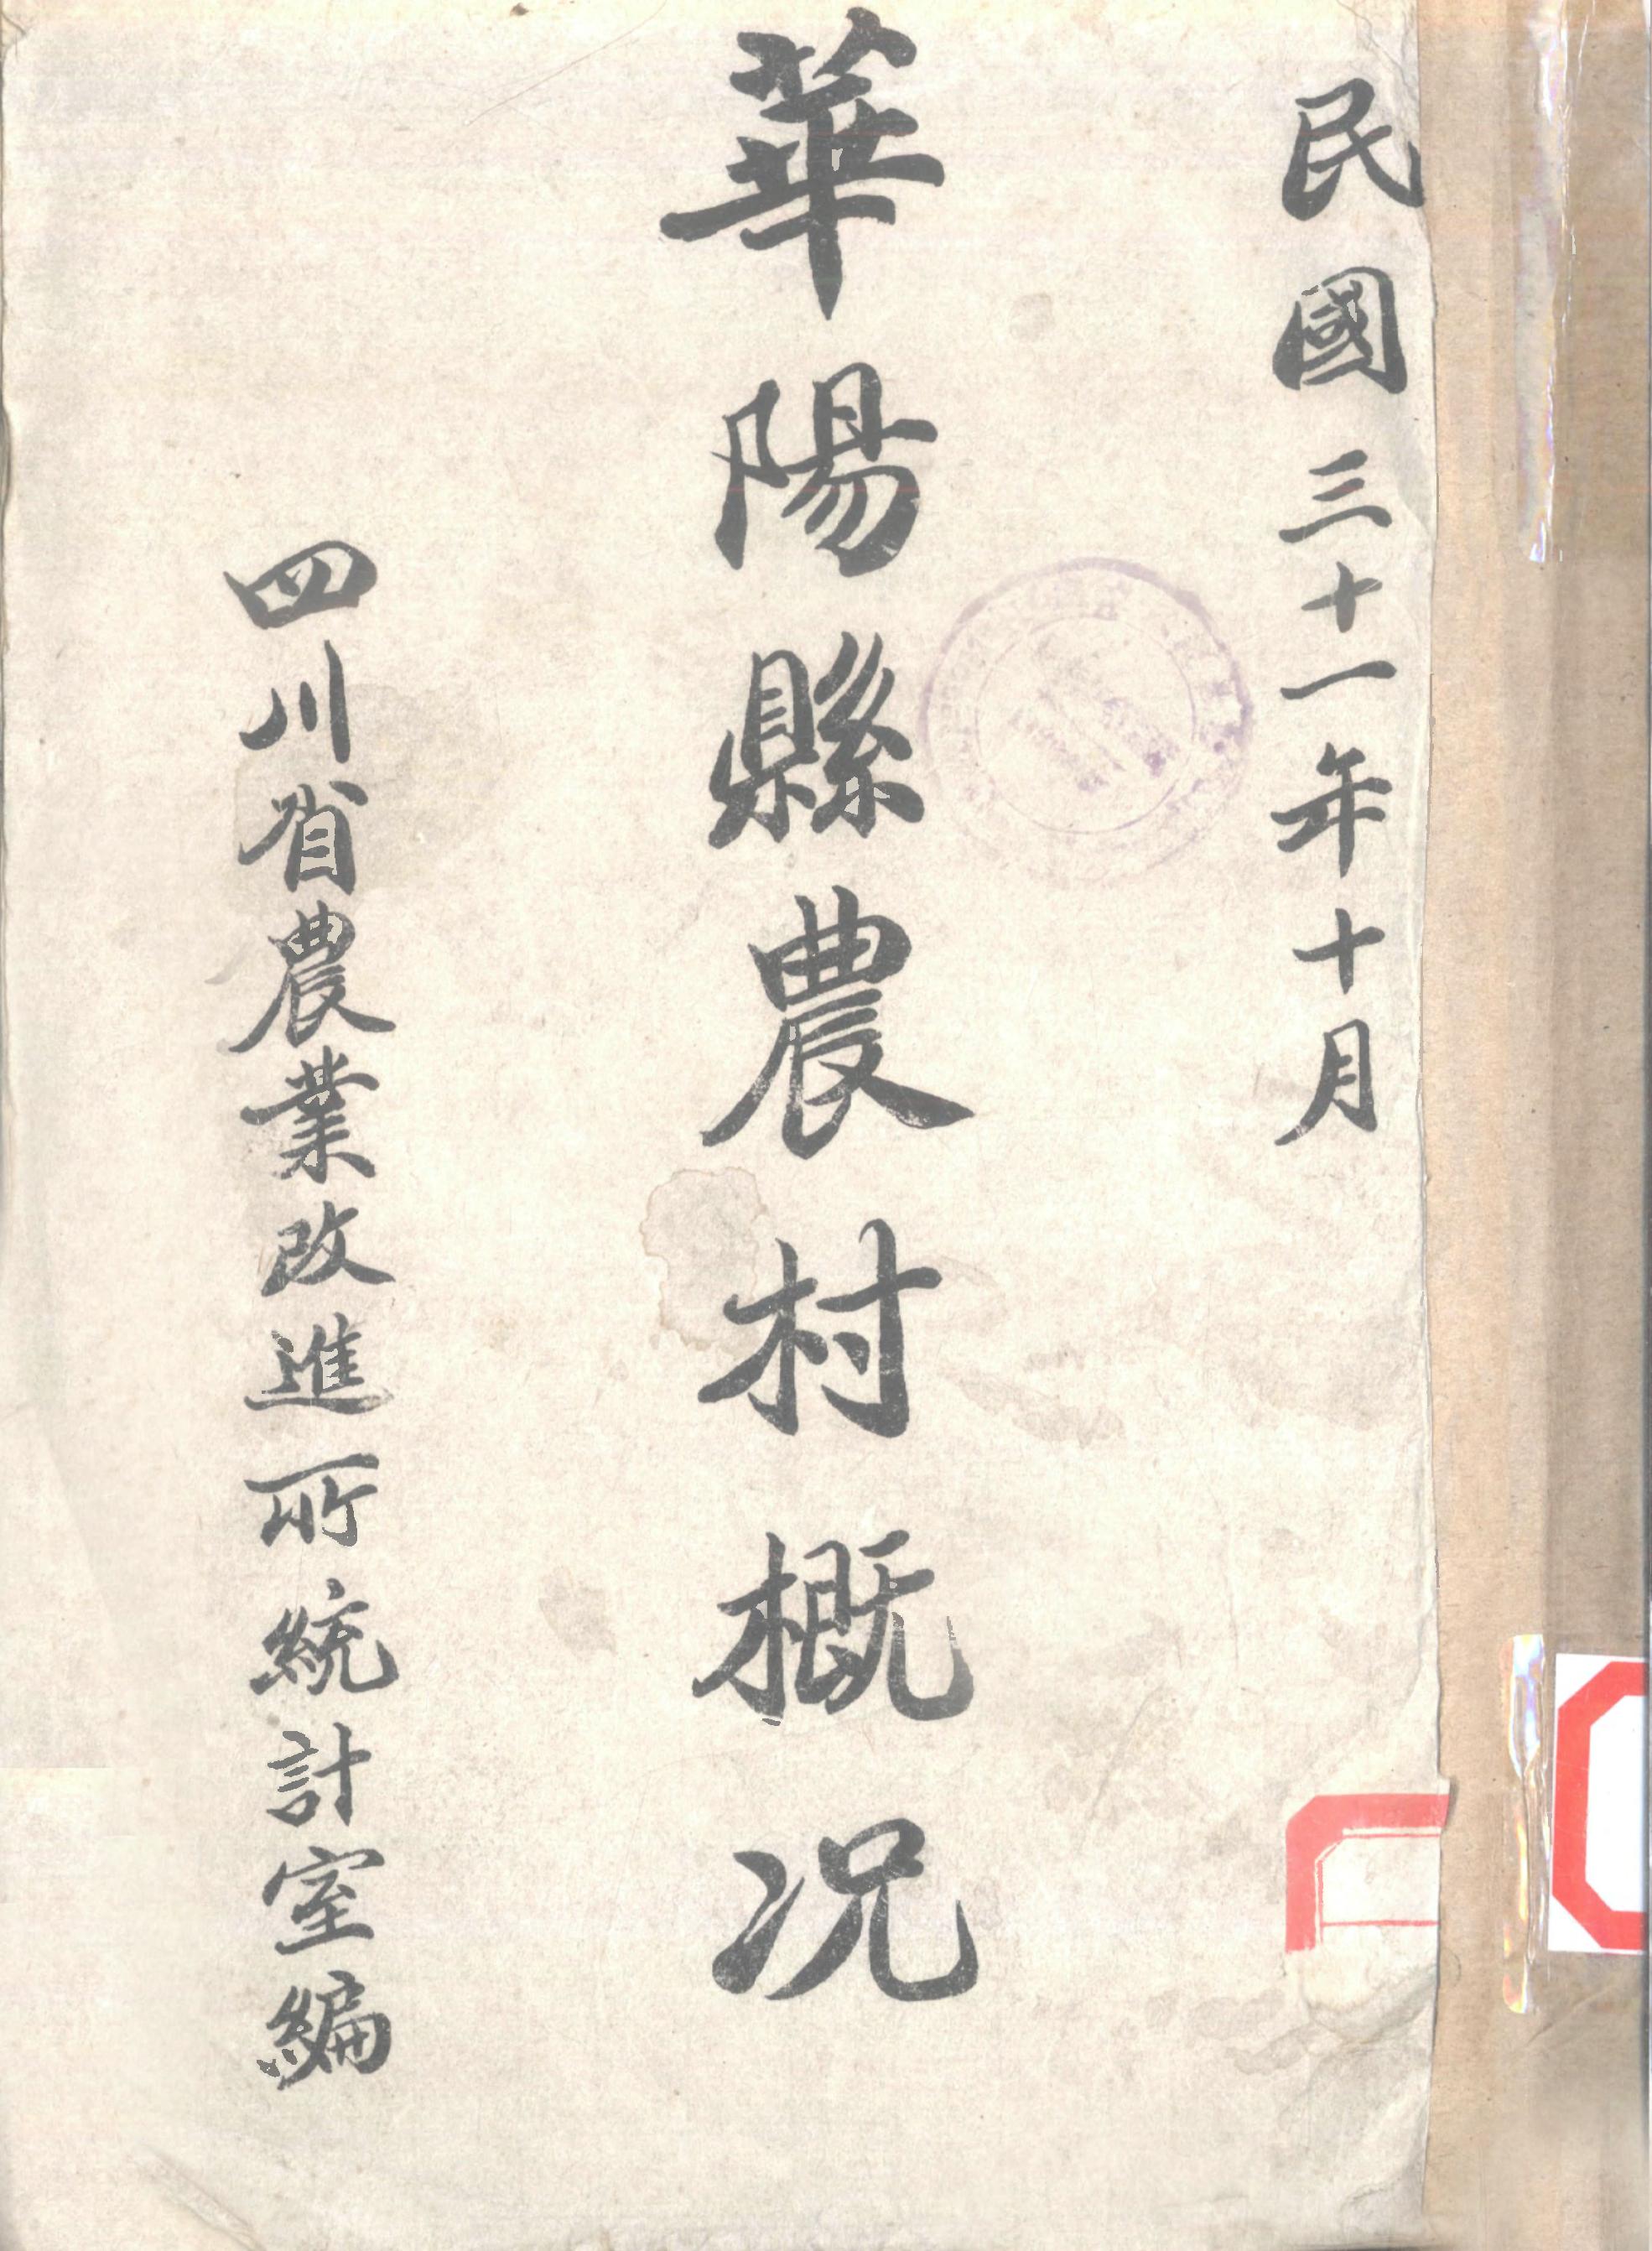 民國三十一年十月
華陽縣農村概况
四川省農業改進所統計室編